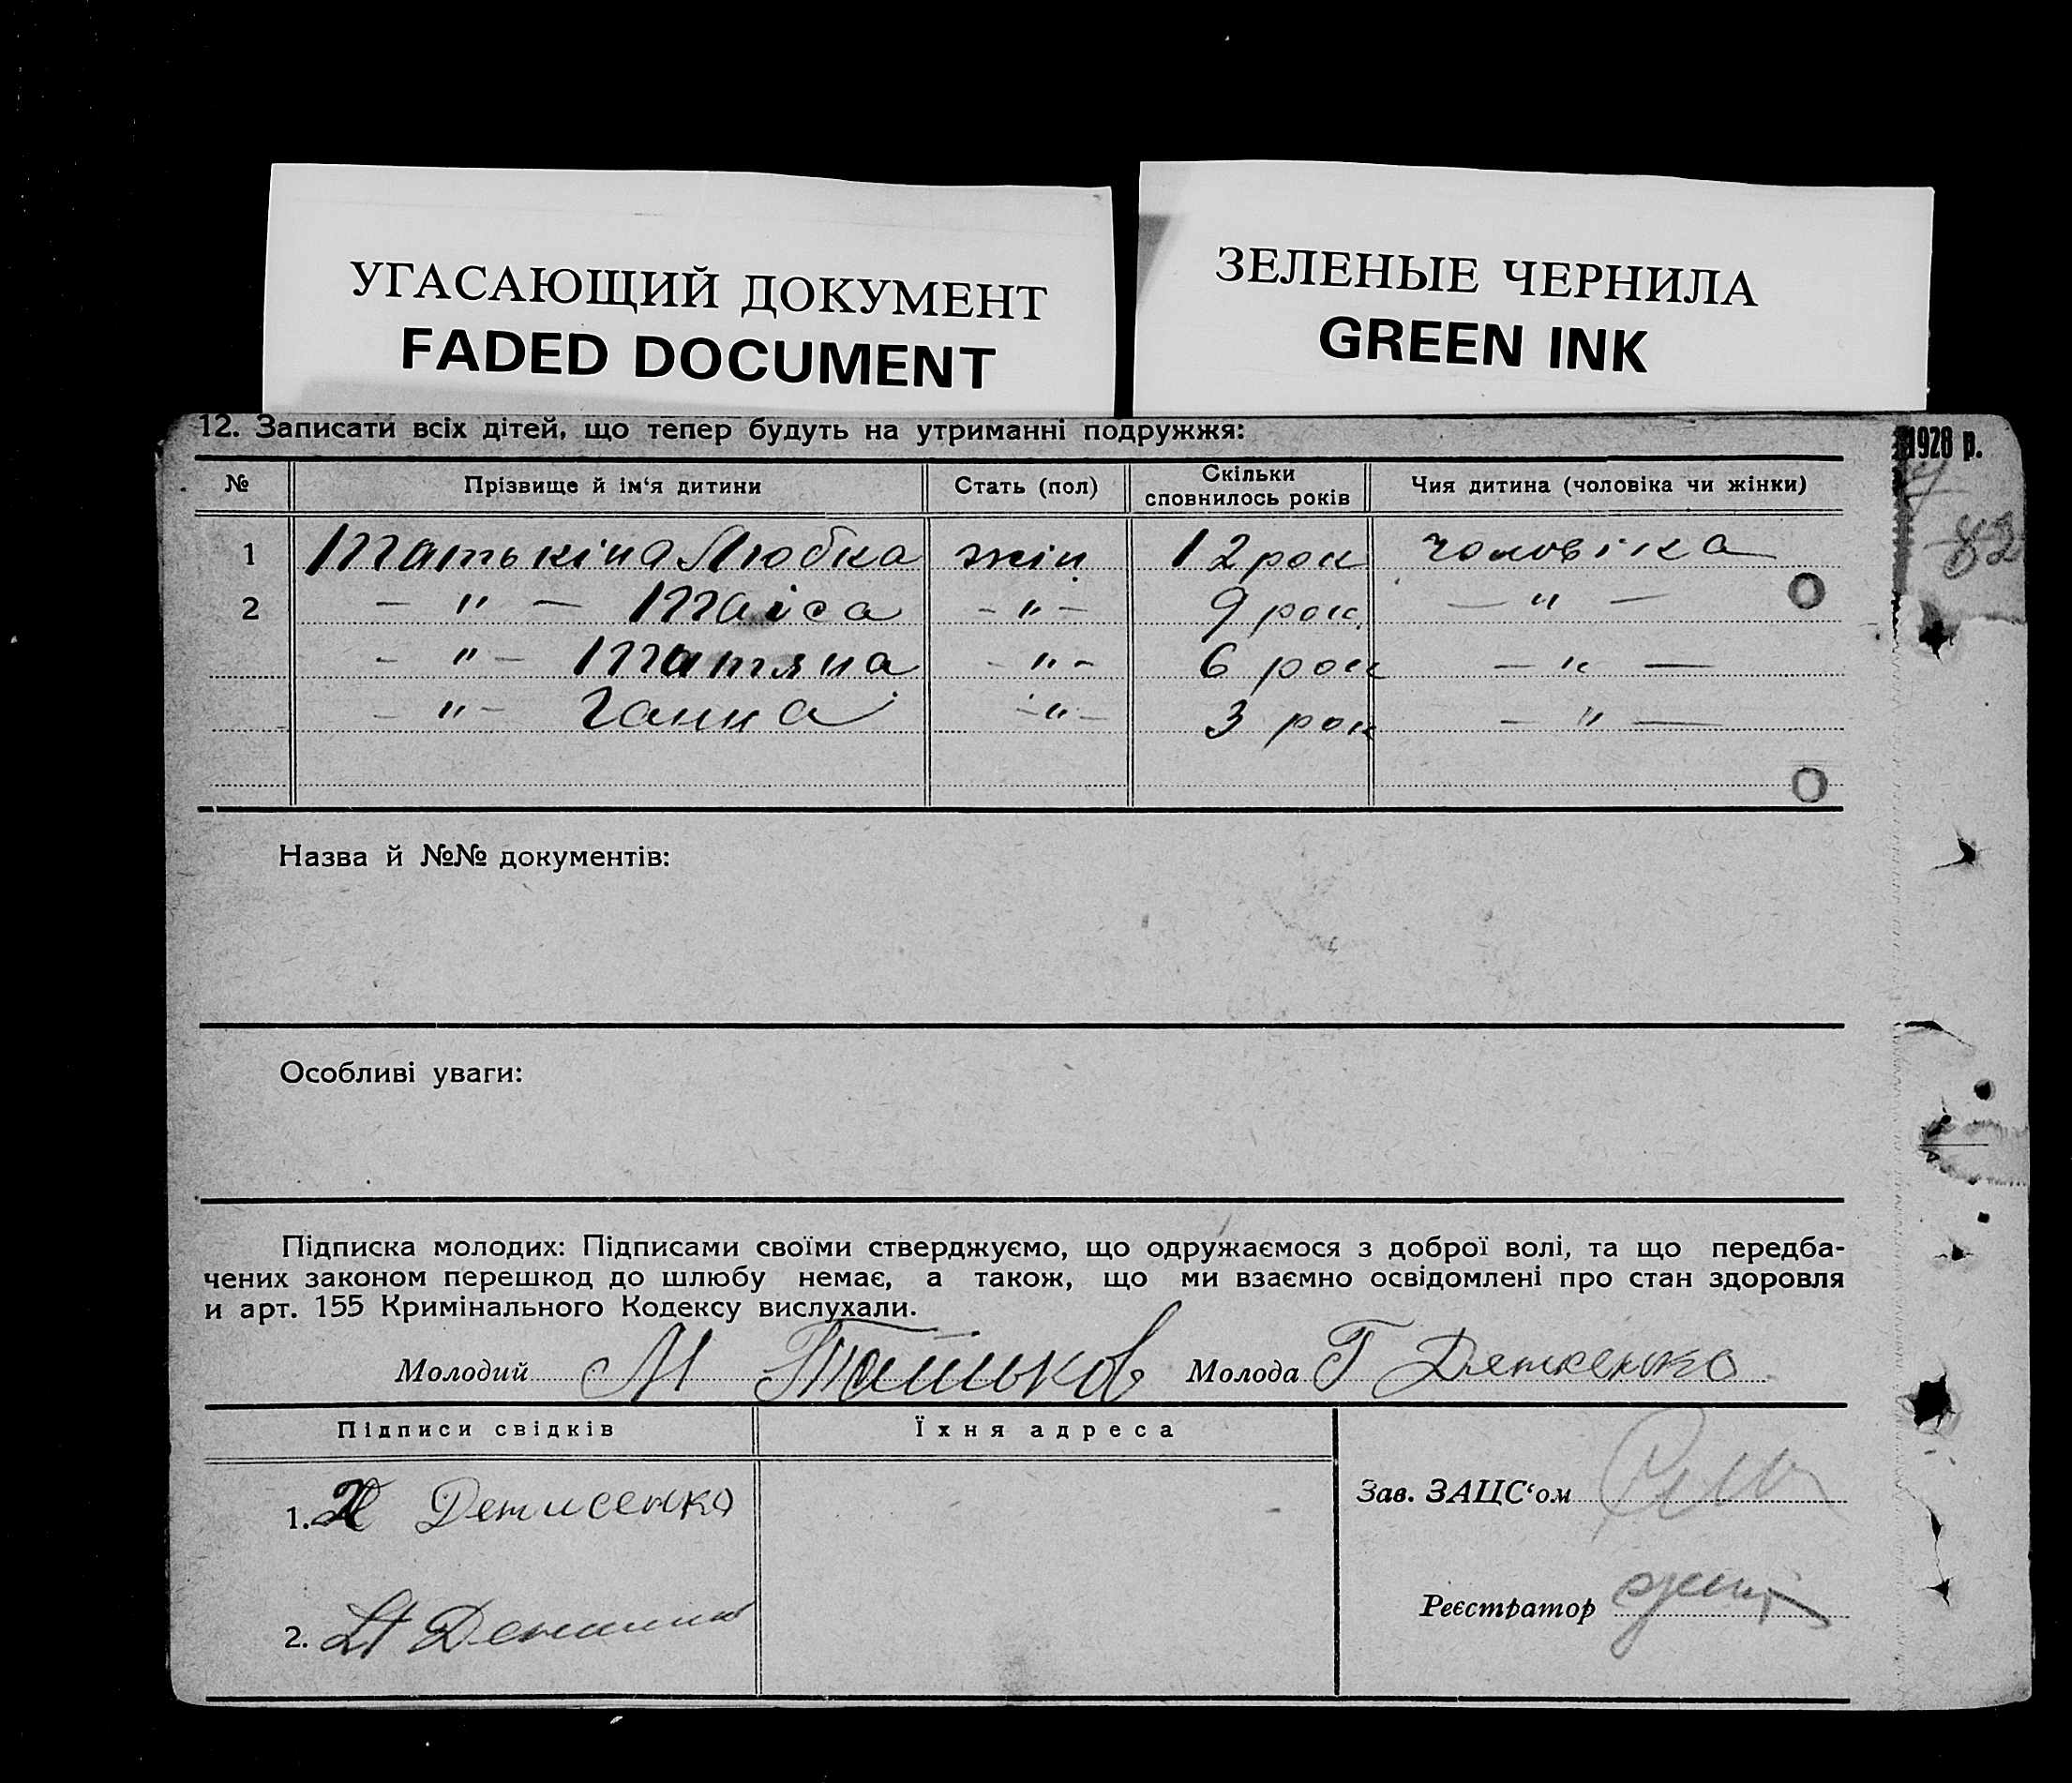 УГАСАЮЩИЙ ДОКУМЕНТ
FADED DOCUMENT
ЗЕЛЕНЫЕ ЧЕРНИЛА
GREEN INK
12. Записати всіх дітей, що тепер будуть на утриманні подружжя:
1928 р.
№ Прізвище й ім‘я дитини Стать (пол) Скільки сповнилось років Чия дитина (чоловіка чи жінки)
82
1 Татькіна Любка жін. 12 рок чоловіка
2 — " — Таіса — " — 9 рок. — " —
— " — Татяна — " — 6 рок — " —
— " — Ганна — " — 3 рок — " —
Назва й №№ документів:
Особливі уваги:
Підписка молодих: Підписами своїми стверджуємо, що одружаємося з доброї волі, та що передба-
чених законом перешкод до шлюбу немає, а також, що ми взаємно освідомлені про стан здоровля
и арт. 155 Кримінального Кодексу вислухали.
Молодий М Молода Г
Підписи свідків Їхня адреса
Зав. ЗАЦС‘ом
1.
Реєстратор
2.